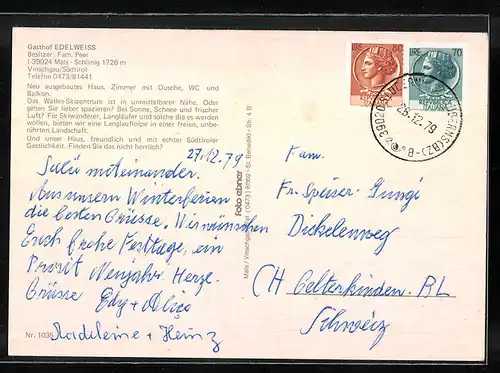 Gasthof EDELWEISS
Besitzer: Fam. Peer
I-39024 Mals - Schlinig 1726 m
Vinschgau/Südtirol
Telefon 0473/81441
Neu ausgebautes Haus. Zimmer mit Dusche, WC und
Balkon.
Das Watles-Skizentrum ist in unmittelbarer Nähe. Oder
gehen Sie lieber spazieren? Bei Sonne, Schnee und frischer
Luft? Für Skiwanderer, Langläufer und solche die es werden
wollen, bieten wir eine Langlaufloipe in einer freien, unbe-
rührten Landschaft.
Und unser Haus, freundlich und mit echter Südtiroler
Gastlichkeit. Finden Sie das nicht herrlich?
27.12.79
Salü miteinander.
Aus unsern Winterferien
die besten Grüsse. Wir wünschen
Euch frohe Festtage, ein
Prosit Neujahr. Herzl.
Grüsse Edy + Alice
Madeleine + Heinz
Nr. 1035
Foto ebner
Mals / Vinschgau - St. Benedikt - Str. 4 B
LIRE 80
LIRE 70
28.12.79
Fam.
Fr. Speiser-Gunzi
Dickelenweg
CH Gelterkinden BL
Schweiz